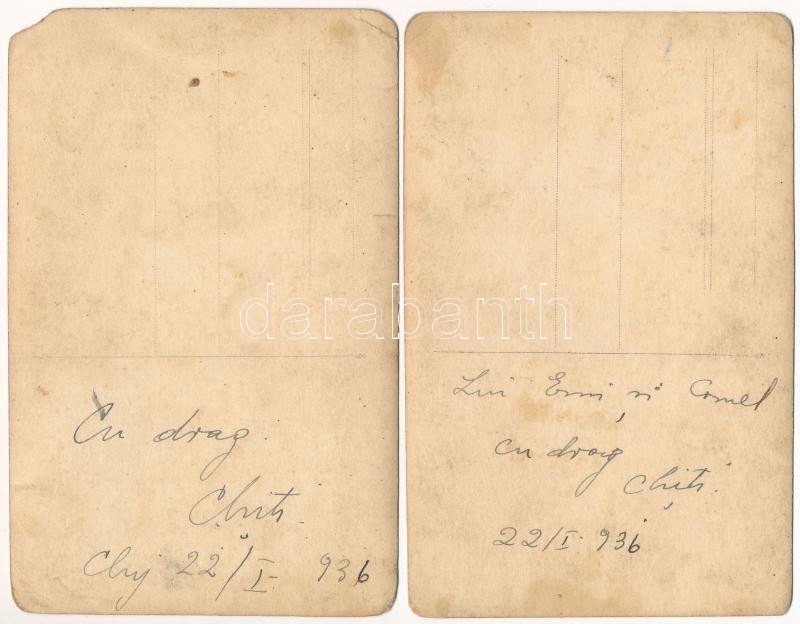 Cu drag
Chiți
Cluj 22/I. 936
Lui Emi și Cornel
cu drag
Chiți.
22/I. 936
darabanth